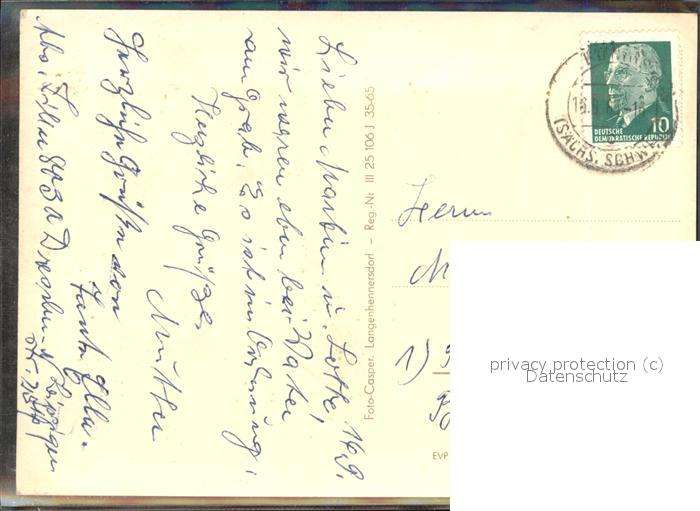 Lieber Martin u. Lotte, 14.9.
wir waren eben bei Vater
am Grab. Es ist in Ordnung.
Herzliche Grüße,
Mutter
Herzliche Grüße von
Tante Ella.
Abs.: 8030 Dresden N Leipziger
Str.
Foto-Casper, Langenhennersdorf – Reg.-Nr III 25 106 J 35-65
EVP
DEUTSCHE
DEMOKRATISCHE REPUBLIK
10
(SÄCHS. SCHW
Herrn
M
1)
privacy protection (c)
Datenschutz